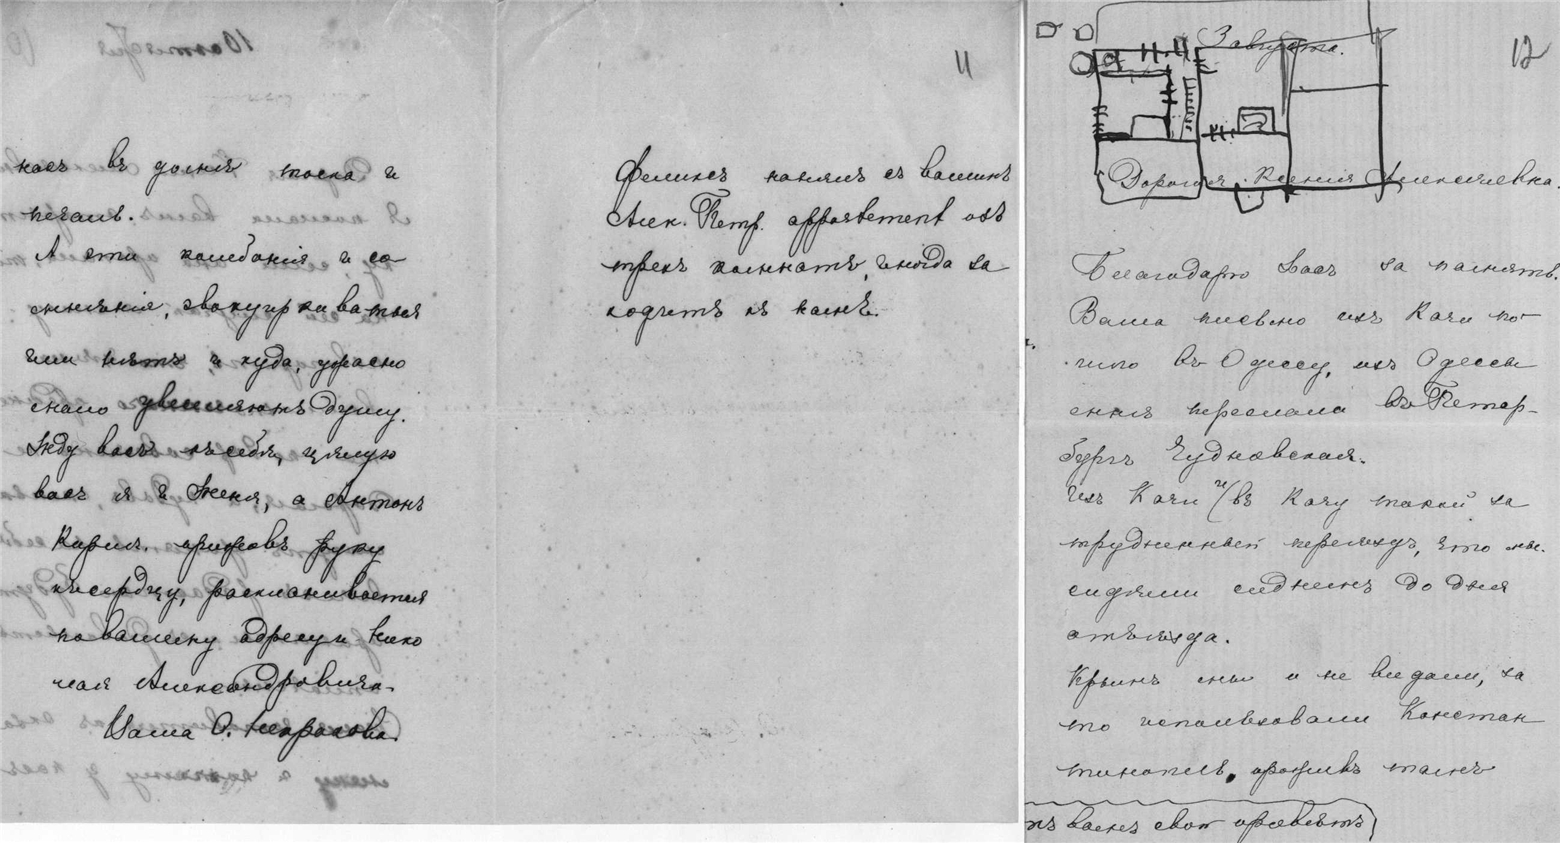 насъ въ домѣ тоска и
печаль.
А эти колебанія и со
мнѣнія, эвакуироваться
или нѣтъ и куда, ужасно
мало увеселяютъ душу.
Жду васъ къ себѣ, цѣлую
васъ я и Женя, а Антонъ
Кирил. прижавъ руку
къ сердцу, раскланивается
по вашему адресу и Нико
лая Александровича.
Ваша О. Некрасова.
11
Феликсъ нанялъ съ вашимъ
Алек. Петр. appartement изъ
трехъ комнатъ, иногда за
ходитъ къ намъ.
12
3 августа.
Дорогая Ксенія Алексѣевна.
Благодарю Васъ за память.
Ваше письмо изъ Качи по-
шло въ Одессу, изъ Одессы
мнѣ переслала въ Петер-
бургъ Чудновская.
Изъ Качи и въ Качу такой за
трудненный переѣздъ, что мы
сидѣли сиднемъ до дня
отъѣзда.
Крымъ мы и не видали, за
то использовали Констан
тинополь, проживъ тамъ
вамъ свой привѣтъ)